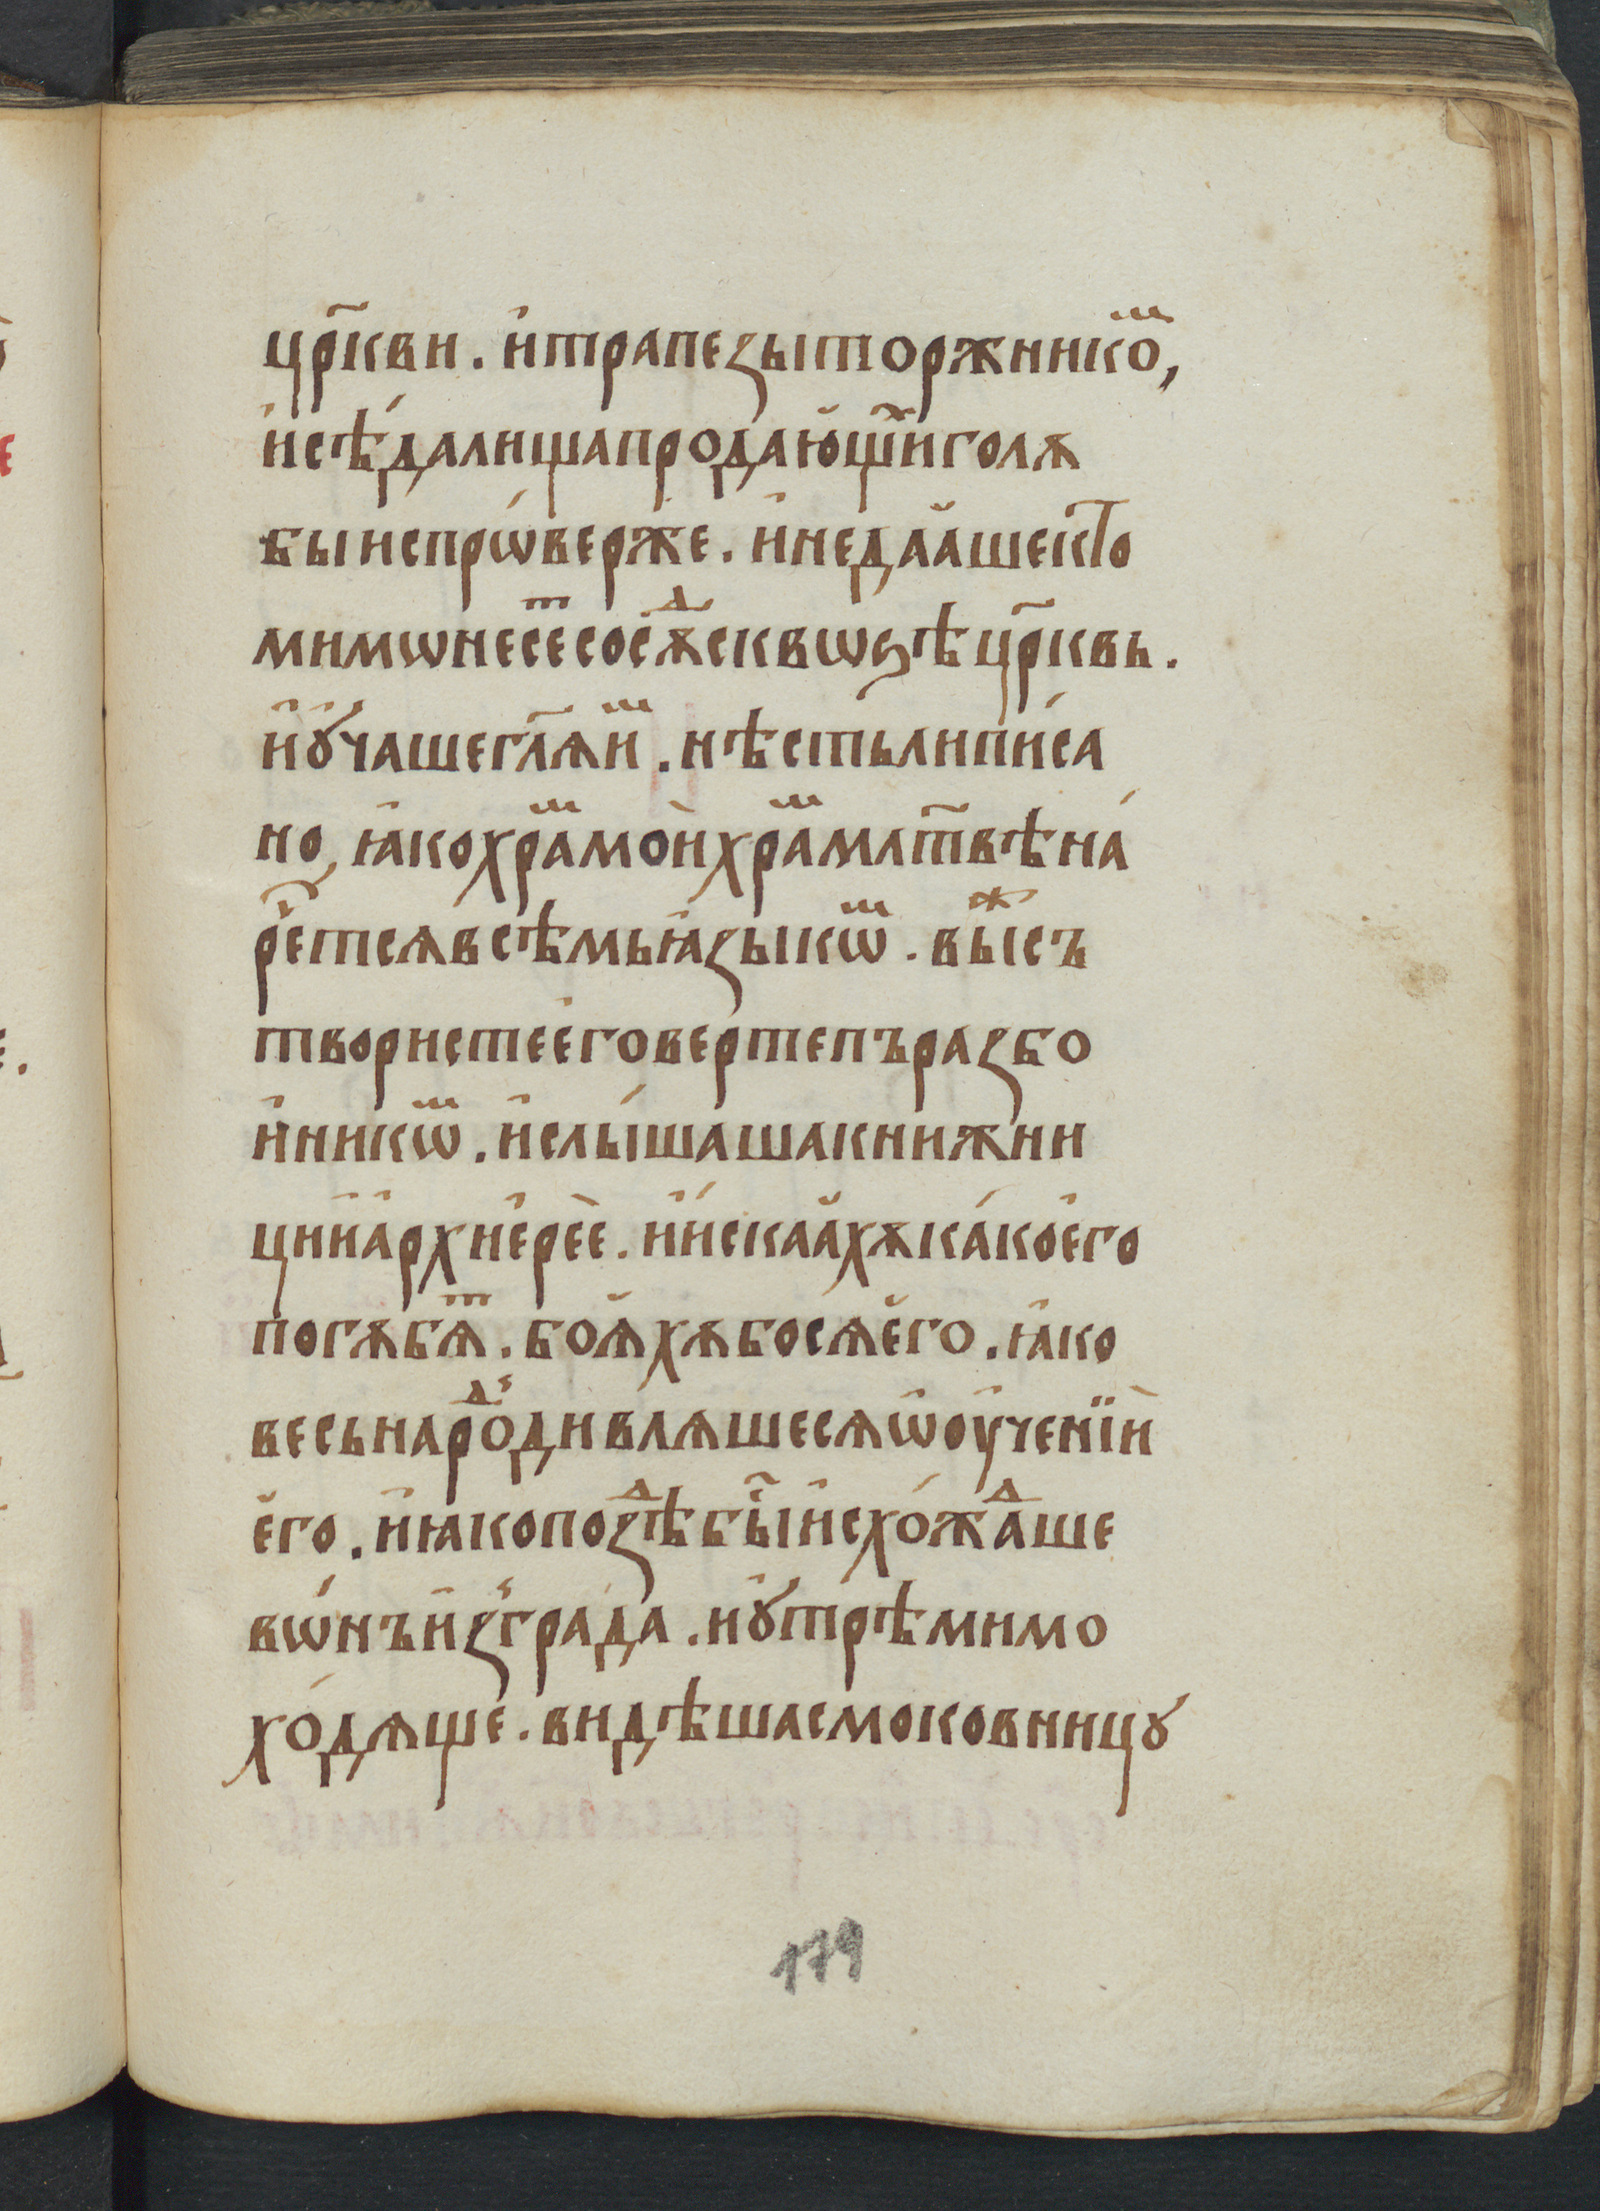 цр҃кви . и҆трапезыторжникоⷨ,
и҆сѣ́далищапродаю҆щиⷯ голѫ
быиспрѡ́верже . и҆недаа҆шекто
мимѡнесеⷭ҇ сосѫⷣсквѡѕѣцр҃квь.
и҆ѹ҆́чашегл҃ѧиⷨ . нѣстьлипи́са
но, ꙗ҆кохраⷨмо́и҆храⷨмлт҃вѣна́
рⷱ҇етсѧвсѣмъꙗ҆зыкѡⷨ . выⷤсъ
твористее҆говертепъразбо
и҆никѡⷨ . и҆слы́шашакнижни
цыи҆а҆рхие҆рее҆ . и҆и҆скаа҆хѫка́кое҆го
погѫбѧⷮ . боѧ҆хѫбосѧе҆го . ꙗ҆ко
весьнароⷣдивлѧшесѧѡ҆ѹ҆чениї и҆
е҆го . и҆ꙗ҆копозⷣѣбы҃и҆схо́жⷣаше
вѡ́нъи҆зграда . и҆ѹ҆трѣмимо
хо́дѧще . видѣшасмоковницꙋ
179